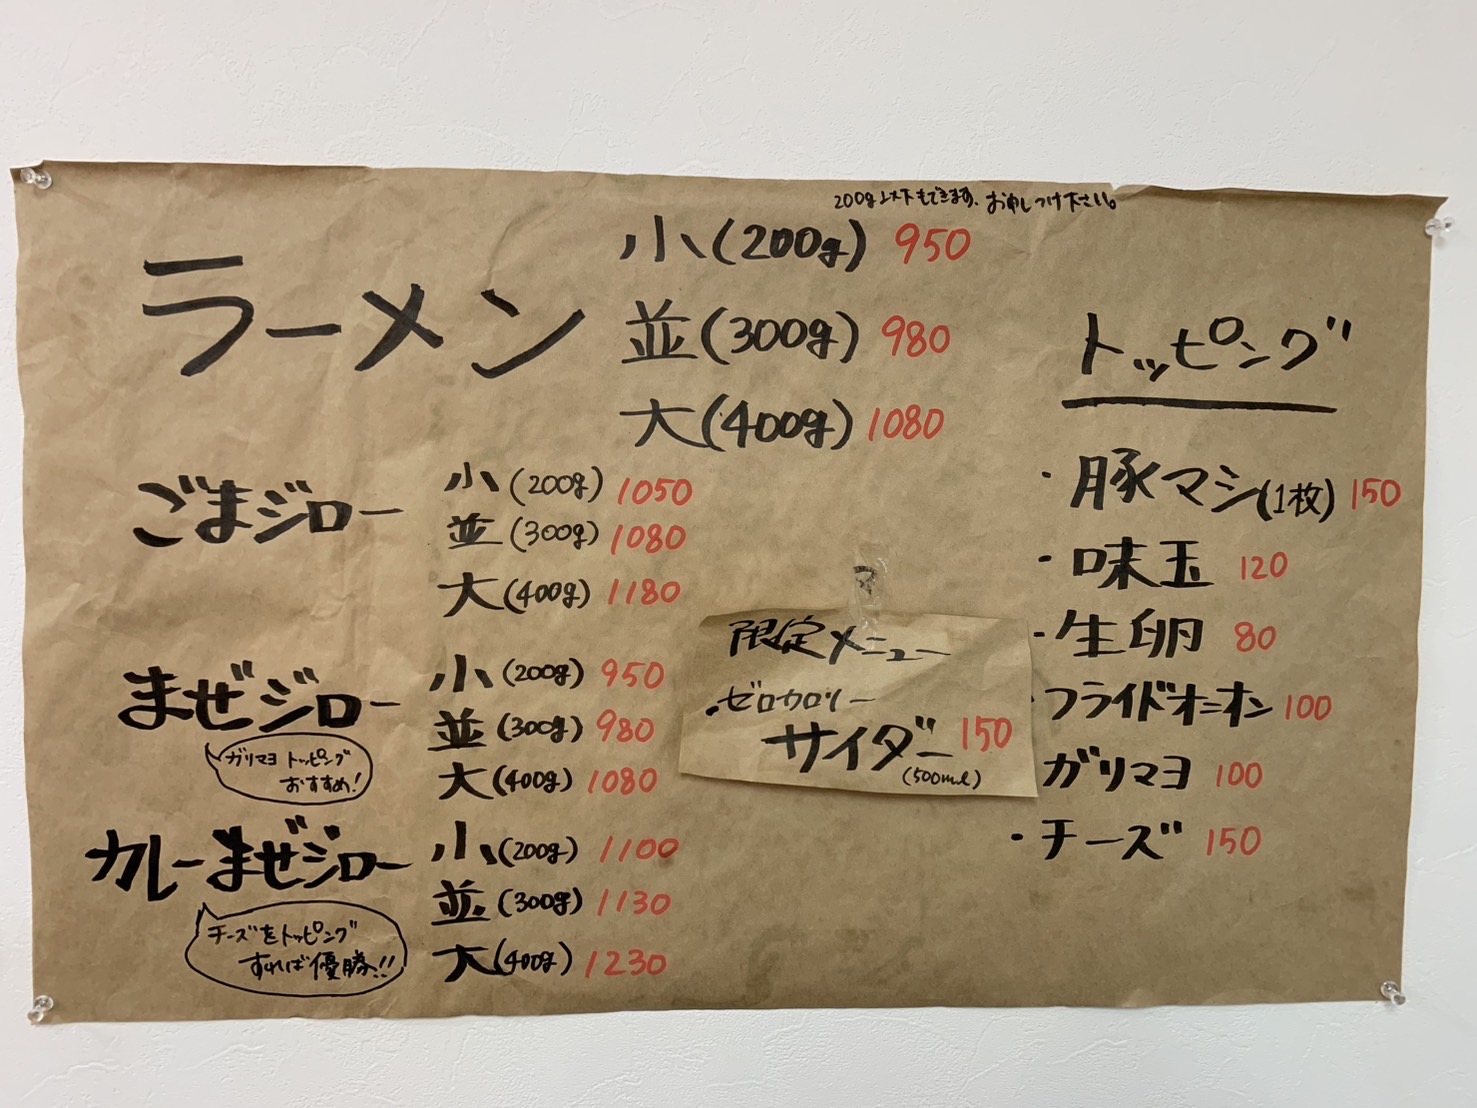 200g以下もできます、お申しつけ下さい。
ラーメン
小(200g) 950
並(300g) 980
大(400g) 1080
ごまジロー
小(200g) 1050
並(300g) 1080
大(400g) 1180
まぜジロー
ガリマヨ トッピング
おすすめ!
小(200g) 950
並(300g) 980
大(400g) 1080
カレーまぜジロー
チーズをトッピング
すれば優勝!!
小(200g) 1100
並(300g) 1130
大(400g) 1230
限定メニュー
・ゼロカロリー
サイダー 150
(500ml)
トッピング
・豚マシ(1枚) 150
・味玉 120
・生卵 80
・フライドオニオン 100
ガリマヨ 100
・チーズ 150